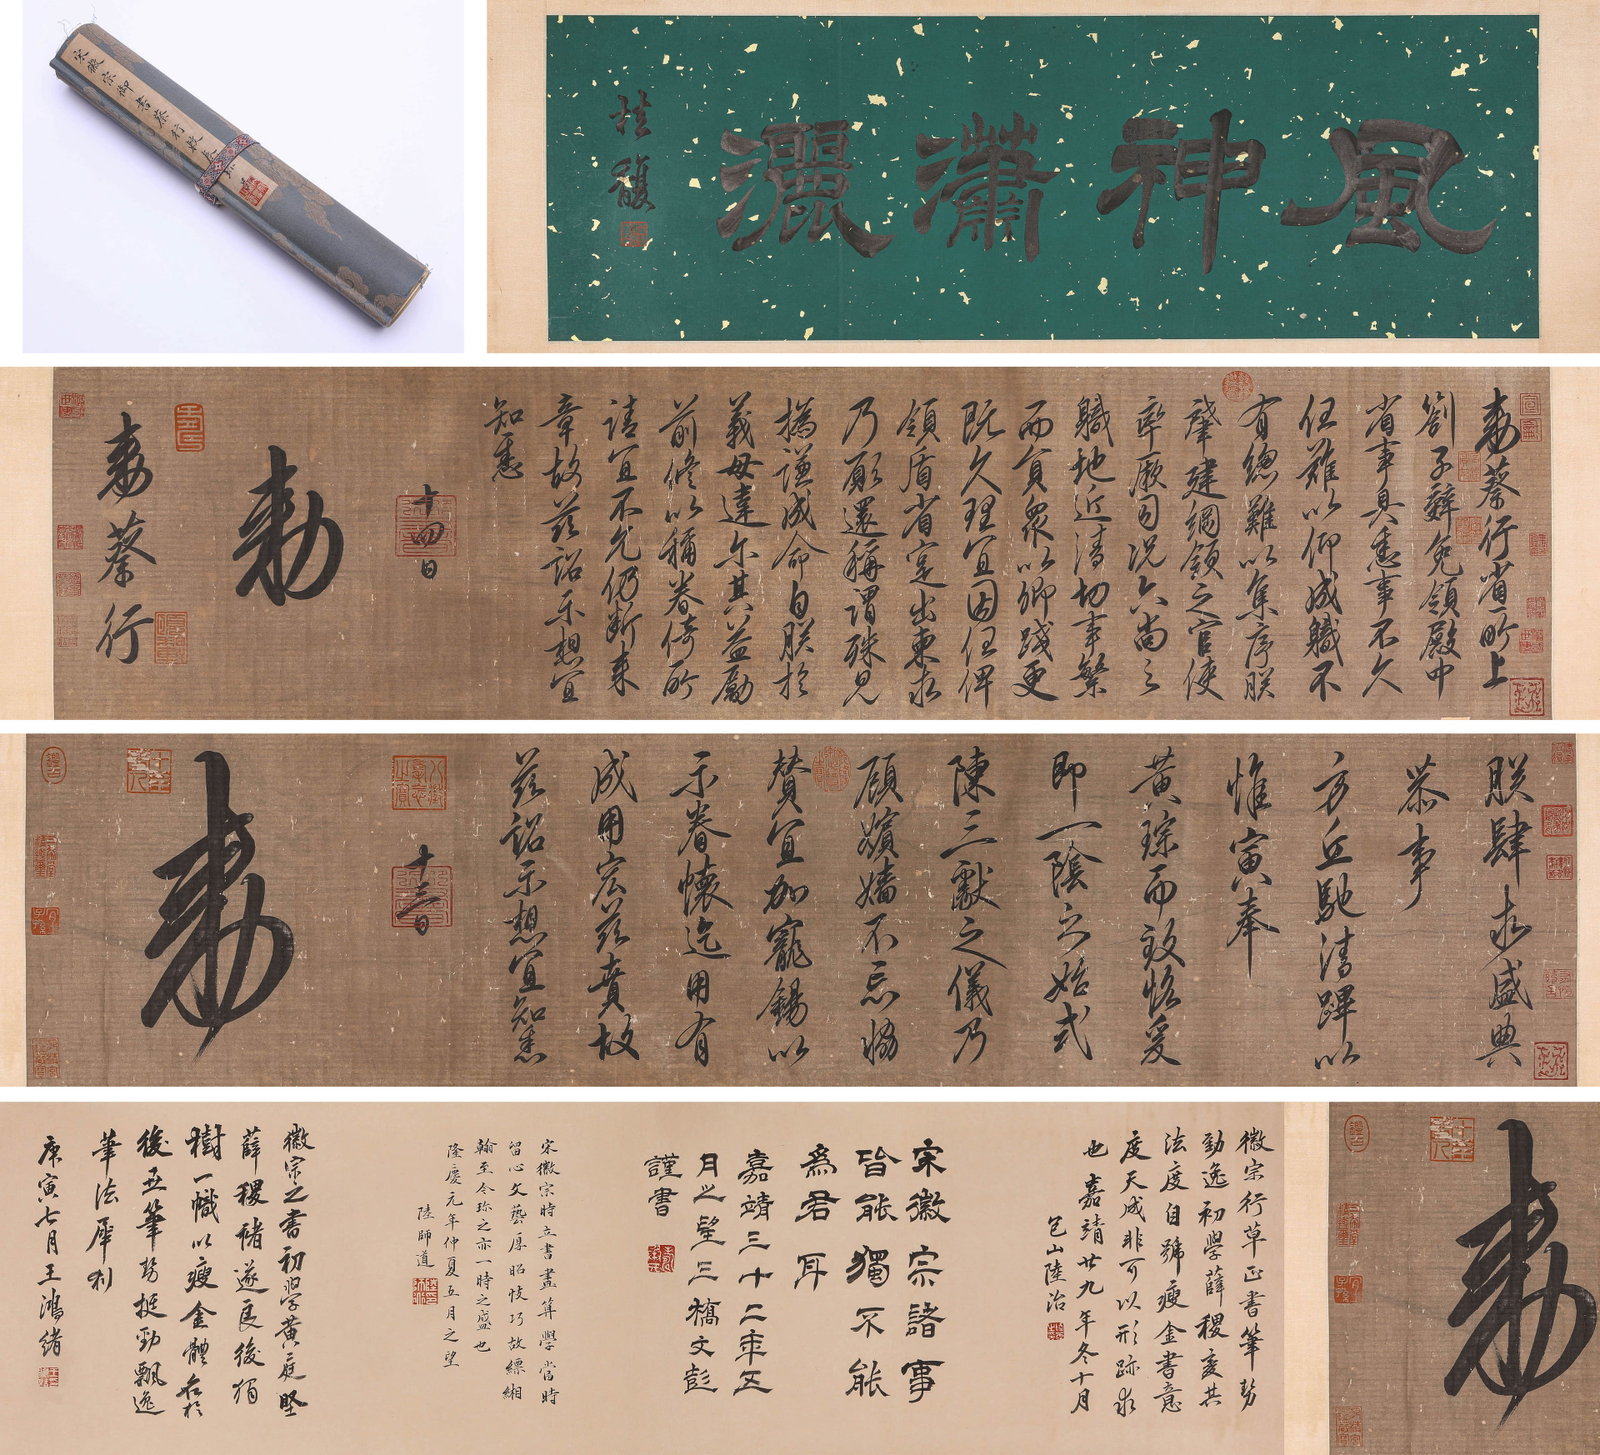 宋徽宗御書蔡行敕卷
風神瀟灑
桂馥
敕蔡行省所上
劄子辭免領殿中
省事具悉事不久
任難以仰成職不
有總難以集序朕
肇建綱領之官使
率厥司況六尚之
職地近清切事繁
而員眾以卿踐更
既久理宜因任俾
領盾省寔出柬求
乃願還稱謂殊見
撝謙成命自朕於
義毋違爾其益勵
前修以稱眷倚所
請宜不允仍斷來
章故茲詔示想宜
知悉
十四日
敕
敕蔡行
朕肆求盛典
恭事
方丘馳清蹕以
惟寅奉
黃琮而致恪爰
即一陰之始式
陳三獻之儀乃
顧嬪嬙不忘協
贊宜加寵錫以
示眷懷迄用有
成用宏茲賁故
茲詔示想宜知悉
十三日
敕
敕
徽宗行草正書筆勢
勁逸初學薛稷変其
法度自號瘦金書意
度天成非可以形跡求
也嘉靖廿九年冬十月
包山陸治
宋徽宗諸事
皆能獨不能
為君耳
嘉靖三十二年五
月之望三橋文彭
謹書
宋徽宗時立書畫算學當時
留心文藝厚昭技巧故縹緗
翰至今珍之亦一時之盛也
隆慶元年仲夏五月之望
陸師道
徽宗之書初學黃庭堅
薛稷褚遂良後獨
樹一幟以瘦金體名於
後丗筆勢挺勁飄逸
筆法犀利
庚寅七月王鴻緒